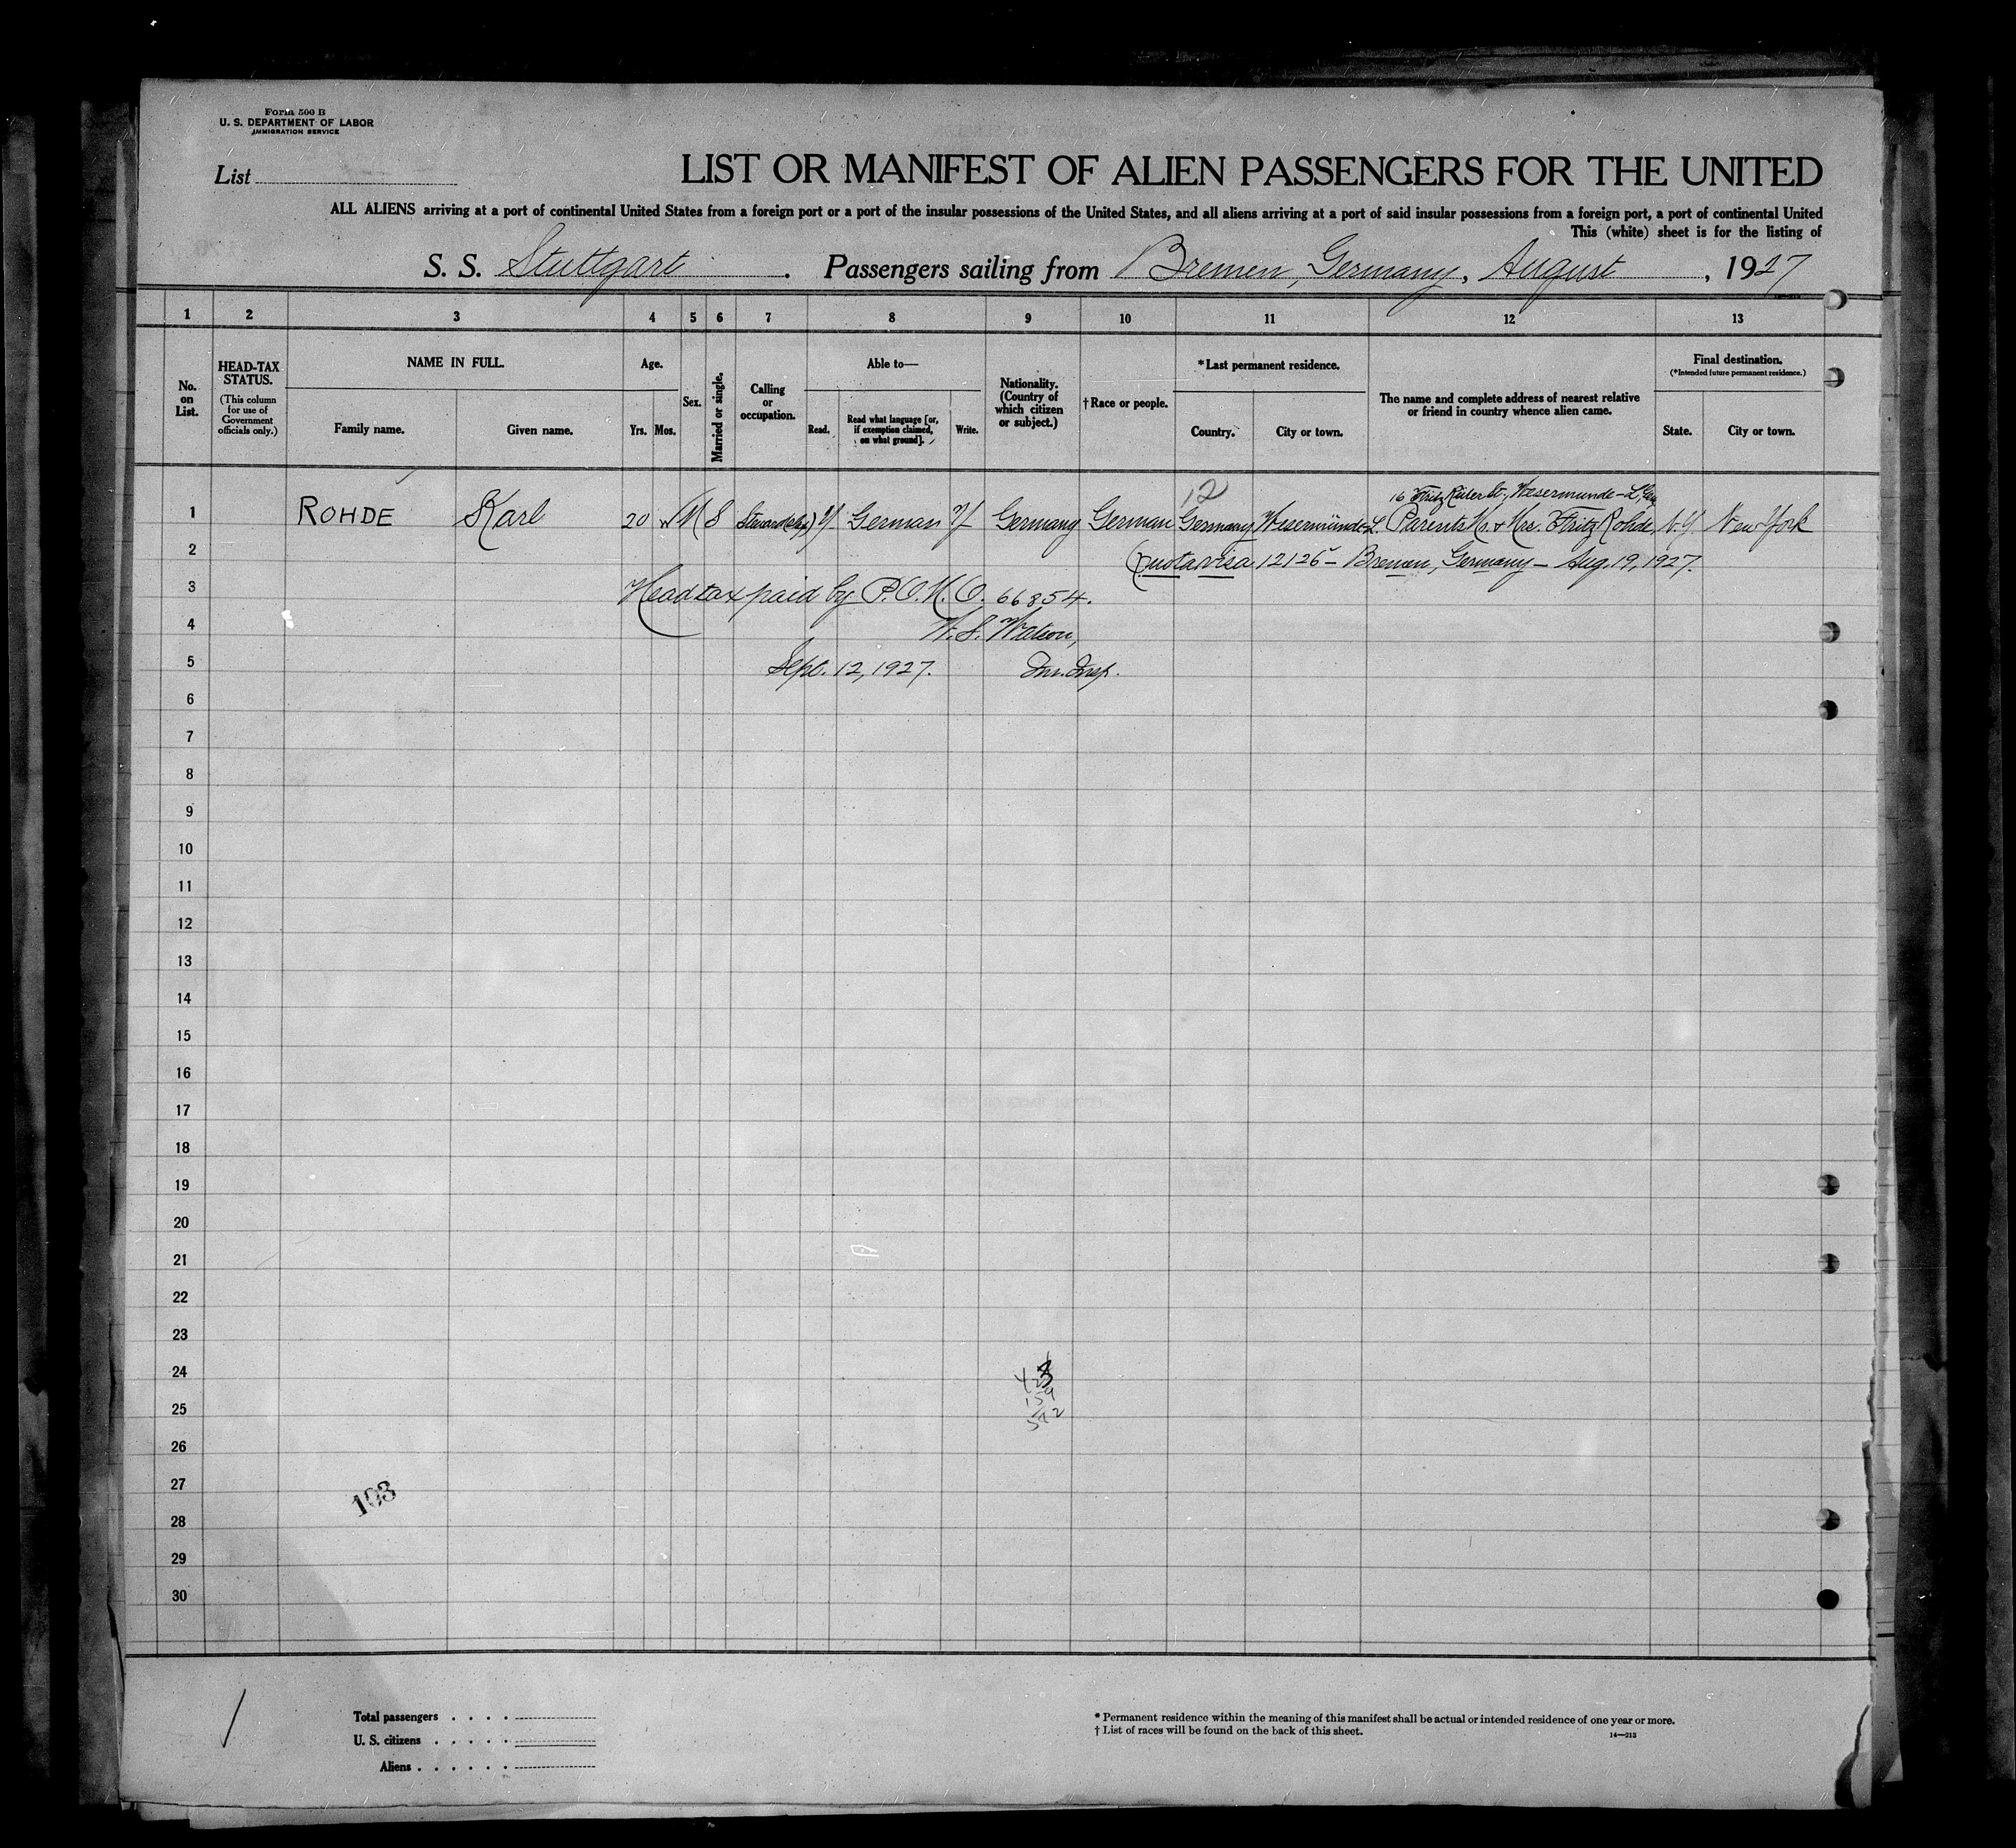 Form 500 B
U. S. DEPARTMENT OF LABOR
IMMIGRATION SERVICE
List
LIST OR MANIFEST OF ALIEN PASSENGERS FOR THE UNITED
ALL ALIENS arriving at a port of continental United States from a foreign port or a port of the insular possessions of the United States, and all aliens arriving at a port of said insular possessions from a foreign port, a port of continental United
This (white) sheet is for the listing of
S. S. Stuttgart. Passengers sailing from Bremen, Germany, August, 1927
1 2 3 4 5 6 7 8 9 10 11 12 13
No. on List.
HEAD-TAX STATUS.
(This column for use of Government officials only.)
NAME IN FULL.
Family name. Given name.
Age.
Yrs. Mos.
Sex.
Married or single.
Calling or occupation.
Able to—
Read. Read what language [or, if exemption claimed, on what ground]. Write.
Nationality. (Country of which citizen or subject.)
†Race or people.
*Last permanent residence.
Country. City or town.
The name and complete address of nearest relative or friend in country whence alien came.
Final destination.
(*Intended future permanent residence.)
State. City or town.
12 16 Fritz Reuter St., Wesermunde-L, Ger.
1 ROHDE Karl 20 M S Steward Y German Y Germany German Germany Wesermünde-L. Parents Mr. & Mrs. Fritz Rohde, N.Y. New York
2 Quota visa 12126 - Bremen, Germany - Aug. 19, 1927.
3 Head tax paid by P.O.M.O. 66854.
4 W. S. Watson,
5 Sept. 12, 1927. Im. Insp.
6
7
8
9
10
11
12
13
14
15
16
17
18
19
20
21
22
23
24
25 159
26
27
103
28
29
30
Total passengers
U. S. citizens
Aliens
* Permanent residence within the meaning of this manifest shall be actual or intended residence of one year or more.
† List of races will be found on the back of this sheet.
14—213